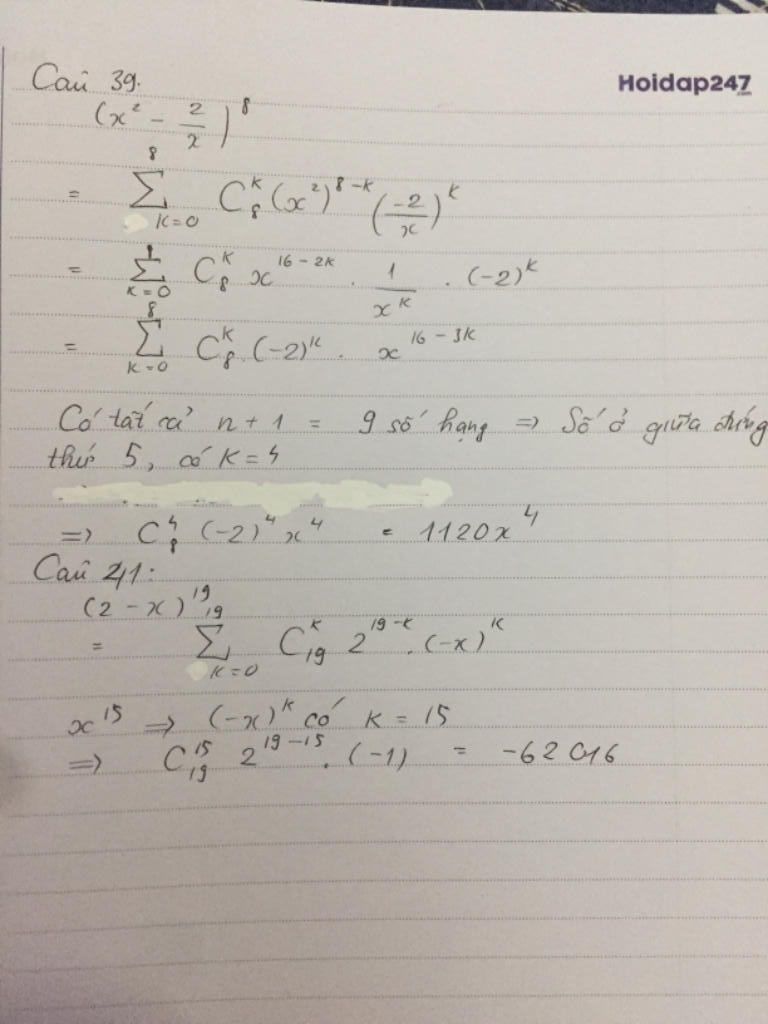 Câu 39.
Hoidap247.com
(x² - 2/x)⁸
= ∑_{k=0}^{8} C_8^k (x²)^{8-k} (-2/x)^k
= ∑_{k=0} C_8^k x^{16-2k} . 1/x^k . (-2)^k
= ∑_{k=0}^{8} C_8^k . (-2)^k . x^{16-3k}
Có tất cả n + 1 = 9 số hạng => Số ở giữa đứng
thứ 5, có k = 4
=> C_8^4 (-2)^4 x^4 = 1120x^4
Câu 41:
(2 - x)^{19}
= ∑_{k=0}^{19} C_{19}^k 2^{19-k} . (-x)^k
x^{15} => (-x)^k có k = 15
=> C_{19}^{15} 2^{19-15} . (-1) = -62016